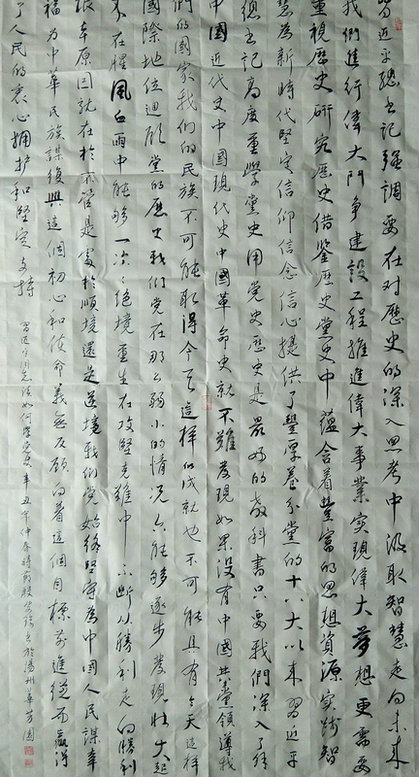 习近平总书记强调要在对歷史的深入思考中汲取智慧走向未来
我們進行偉大鬥争建設工程推進偉大事業实現偉大夢想更需要
重視歷史研究歷史借鉴歷史党史中蕴含着豐富的思想資源实践智
慧為新時代堅定信仰信念信心提供了豐厚养分党的十八大以来習近平
總书记高度重学党史用党史歷史是最好的教科書只要我們深入了解
中國近代史中國現代史中國革命史就不難發現如果没有中國共産党領導我
們的國家我們的民族不可能取得今天這樣的成就也不可能具有今天這样
國際地位迴顧党的歷史我們党在那么弱小的情况下能够逐步發現壮大起
来在腥風血雨中能够一次次绝境重生在攻堅克難中不断从勝利走向勝利
根本原因就在於不管是處於順境還是逆境我們党始终堅守為中國人民謀幸
福為中華民族謀復興這個初心和使命義無反顧向着這個目標前進從而赢得
了人民的衷心拥护和堅定支持
辛丑年仲春 於揚州華芳園